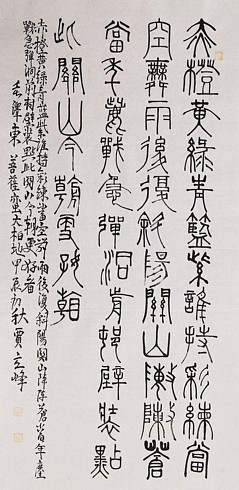 赤橙黄綠青藍紫誰持彩練當
空舞雨後復斜陽關山陣陣蒼
當年鏖戰急彈洞前邨壁裝點
此關山今朝更好看
赤橙黄綠青藍紫誰持彩練當空舞雨後復斜陽關山陣陣蒼當年鏖
戰急彈洞前村壁裝點此關山今朝更好看
毛澤東 菩薩蠻大柏地 甲辰初秋 賈立峰